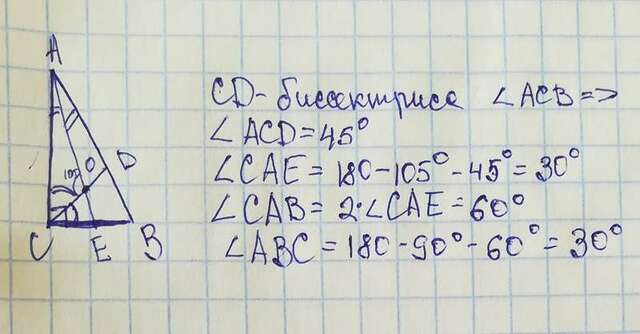 A
105°
O
D
C
E
B
CD - биссектриса ∠ACB =>
∠ACD = 45°
∠CAE = 180 - 105° - 45° = 30°
∠CAB = 2·∠CAE = 60°
∠ABC = 180 - 90° - 60° = 30°